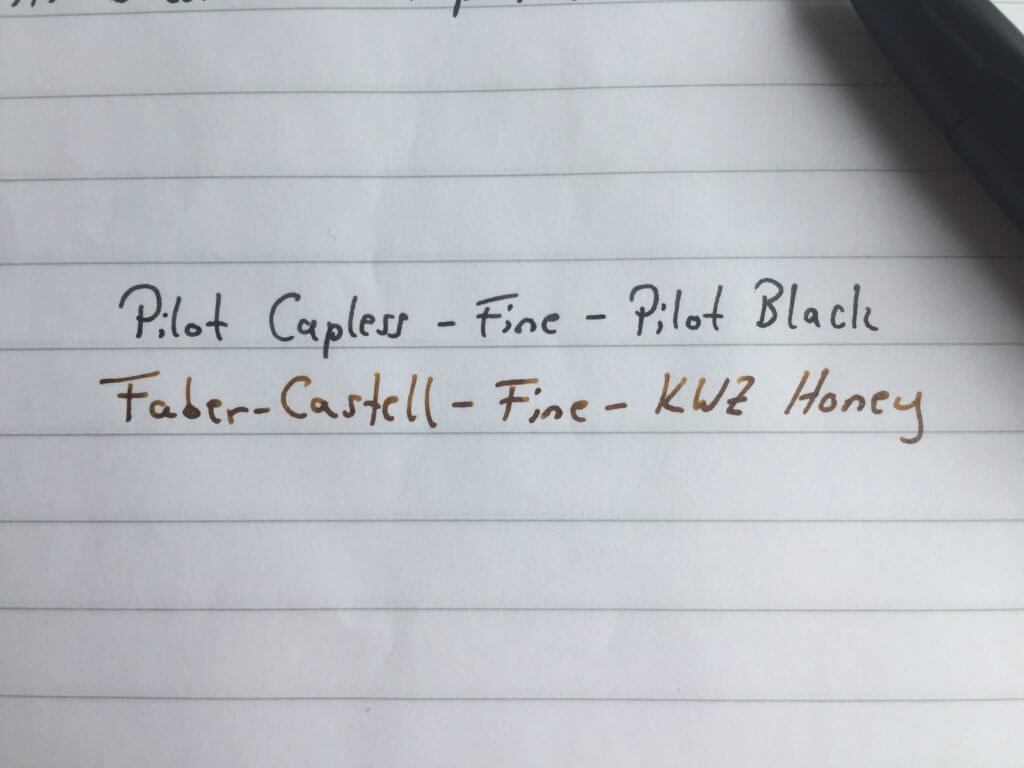 Pilot Capless - Fine - Pilot Black
Faber-Castell - Fine - KWZ Honey